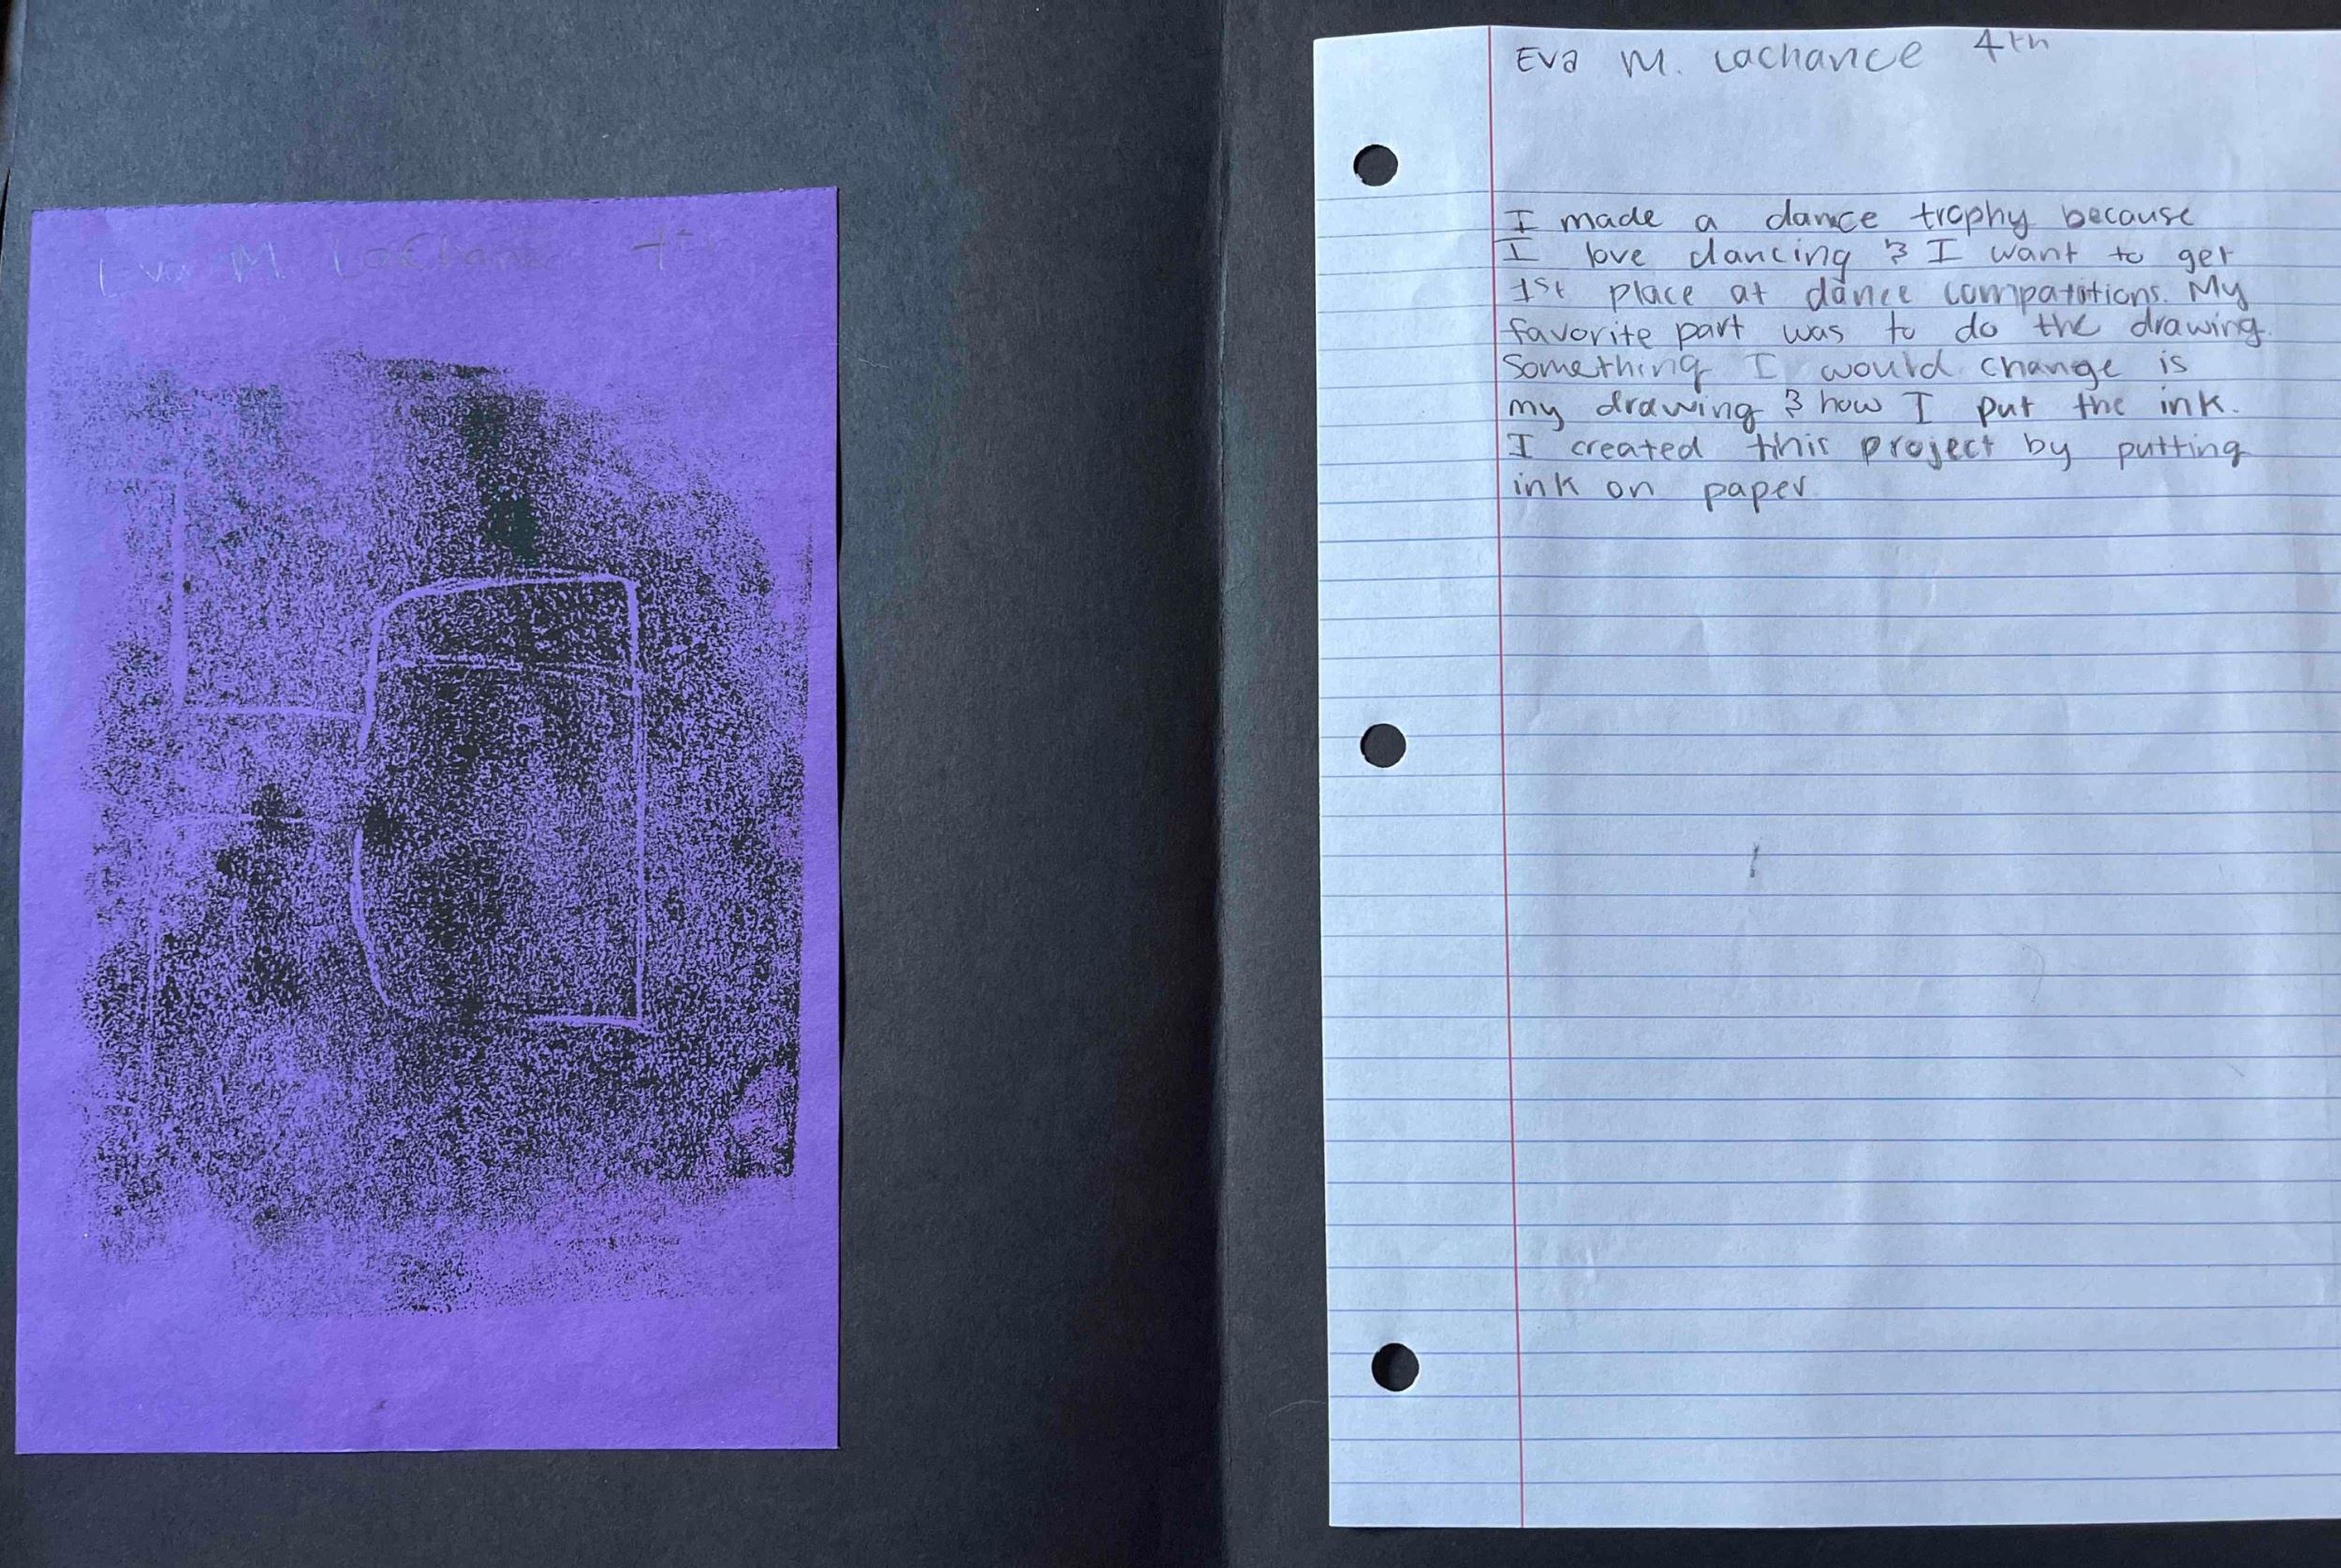 Eva M. LaChance 4th
Eva M. Lachance 4th
I made a dance trophy because
I love dancing & I want to get
1st place at dance compatitions. My
favorite part was to do the drawing.
Something I would change is
my drawing & how I put the ink.
I created this project by putting
ink on paper